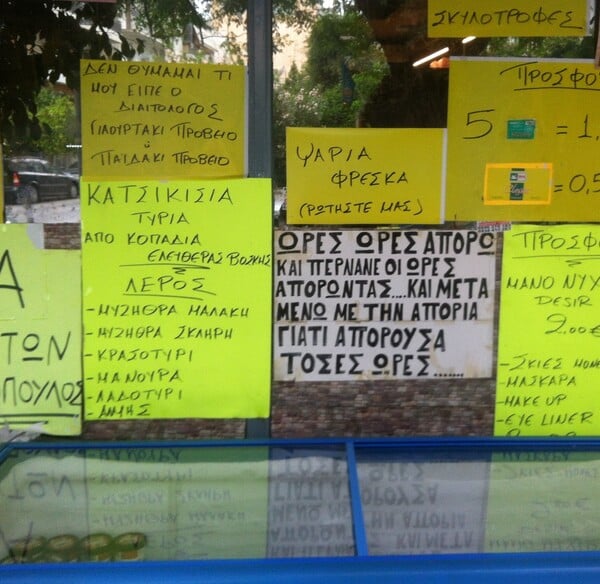 ΣΚΥΛΟΤΡΟΦΕΣ
ΔΕΝ ΘΥΜΑΜΑΙ ΤΙ
ΜΟΥ ΕΙΠΕ Ο
ΔΙΑΙΤΟΛΟΓΟΣ
ΓΙΑΟΥΡΤΑΚΙ ΠΡΟΒΕΙΟ
ή
ΠΑΪΔΑΚΙ ΠΡΟΒΕΙΟ
ΨΑΡΙΑ
ΦΡΕΣΚΑ
(ΡΩΤΗΣΤΕ ΜΑΣ)
ΠΡΟΣΦΟ
5 = 1,
= 0,5
ΚΑΤΣΙΚΙΣΙΑ
ΤΥΡΙΑ
ΑΠΟ ΚΟΠΑΔΙΑ
ΕΛΕΥΘΕΡΑΣ ΒΟΣΚΗΣ
ΛΕΡΟΣ
- ΜΥΖΗΘΡΑ ΜΑΛΑΚΗ
- ΜΥΖΗΘΡΑ ΣΚΛΗΡΗ
- ΚΡΑΣΟΤΥΡΙ
- ΜΑΝΟΥΡΑ
- ΛΑΔΟΤΥΡΙ
Α
ΤΩΝ
ΟΠΟΥΛΟΣ
ΩΡΕΣ ΩΡΕΣ ΑΠΟΡΩ
ΚΑΙ ΠΕΡΝΑΝΕ ΟΙ ΩΡΕΣ
ΑΠΟΡΩΝΤΑΣ....ΚΑΙ ΜΕΤΑ
ΜΕΝΩ ΜΕ ΤΗΝ ΑΠΟΡΙΑ
ΓΙΑΤΙ ΑΠΟΡΟΥΣΑ
ΤΟΣΕΣ ΩΡΕΣ.......
ΠΡΟΣΦΟ
ΜΑΝΟ ΝΥΧ
DESIR
2,00€
- ΣΚΙΕΣ ΜΟΝΟ
- ΜΑΣΚΑΡΑ
- MAKE UP
- EYE LINER